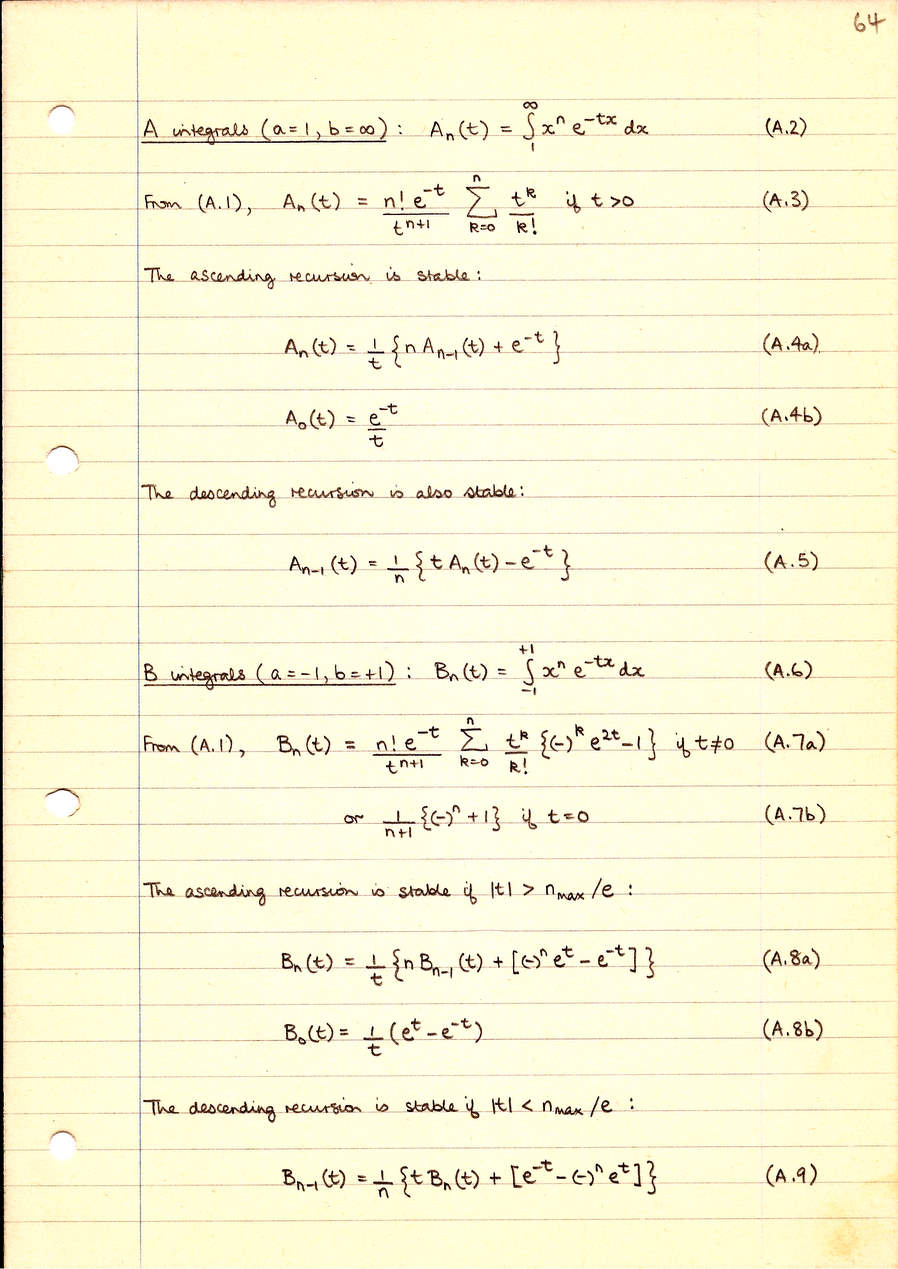 64
A integrals (a=1, b=∞) : Aₙ(t) = ∫₁^∞ xⁿ e^{-tx} dx (A.2)
From (A.1), Aₙ(t) = \frac{n! e^{-t}}{t^{n+1}} \sum_{k=0}^{n} \frac{t^k}{k!} if t>0 (A.3)
The ascending recursion is stable:
Aₙ(t) = \frac{1}{t} {n A_{n-1}(t) + e^{-t}} (A.4a)
A₀(t) = \frac{e^{-t}}{t} (A.4b)
The descending recursion is also stable:
A_{n-1}(t) = \frac{1}{n} {t Aₙ(t) - e^{-t}} (A.5)
B integrals (a=-1, b=+1) : Bₙ(t) = ∫_{-1}^{+1} xⁿ e^{-tx} dx (A.6)
From (A.1), Bₙ(t) = \frac{n! e^{-t}}{t^{n+1}} \sum_{k=0}^{n} \frac{t^k}{k!} {(-)^k e^{2t} - 1} if t≠0 (A.7a)
or \frac{1}{n+1} {(-)ⁿ + 1} if t=0 (A.7b)
The ascending recursion is stable if |t| > n_{max}/e :
Bₙ(t) = \frac{1}{t} {n B_{n-1}(t) + [(-)ⁿ e^t - e^{-t}]} (A.8a)
B₀(t) = \frac{1}{t} (e^t - e^{-t}) (A.8b)
The descending recursion is stable if |t| < n_{max}/e :
B_{n-1}(t) = \frac{1}{n} {t Bₙ(t) + [e^{-t} - (-)ⁿ e^t]} (A.9)